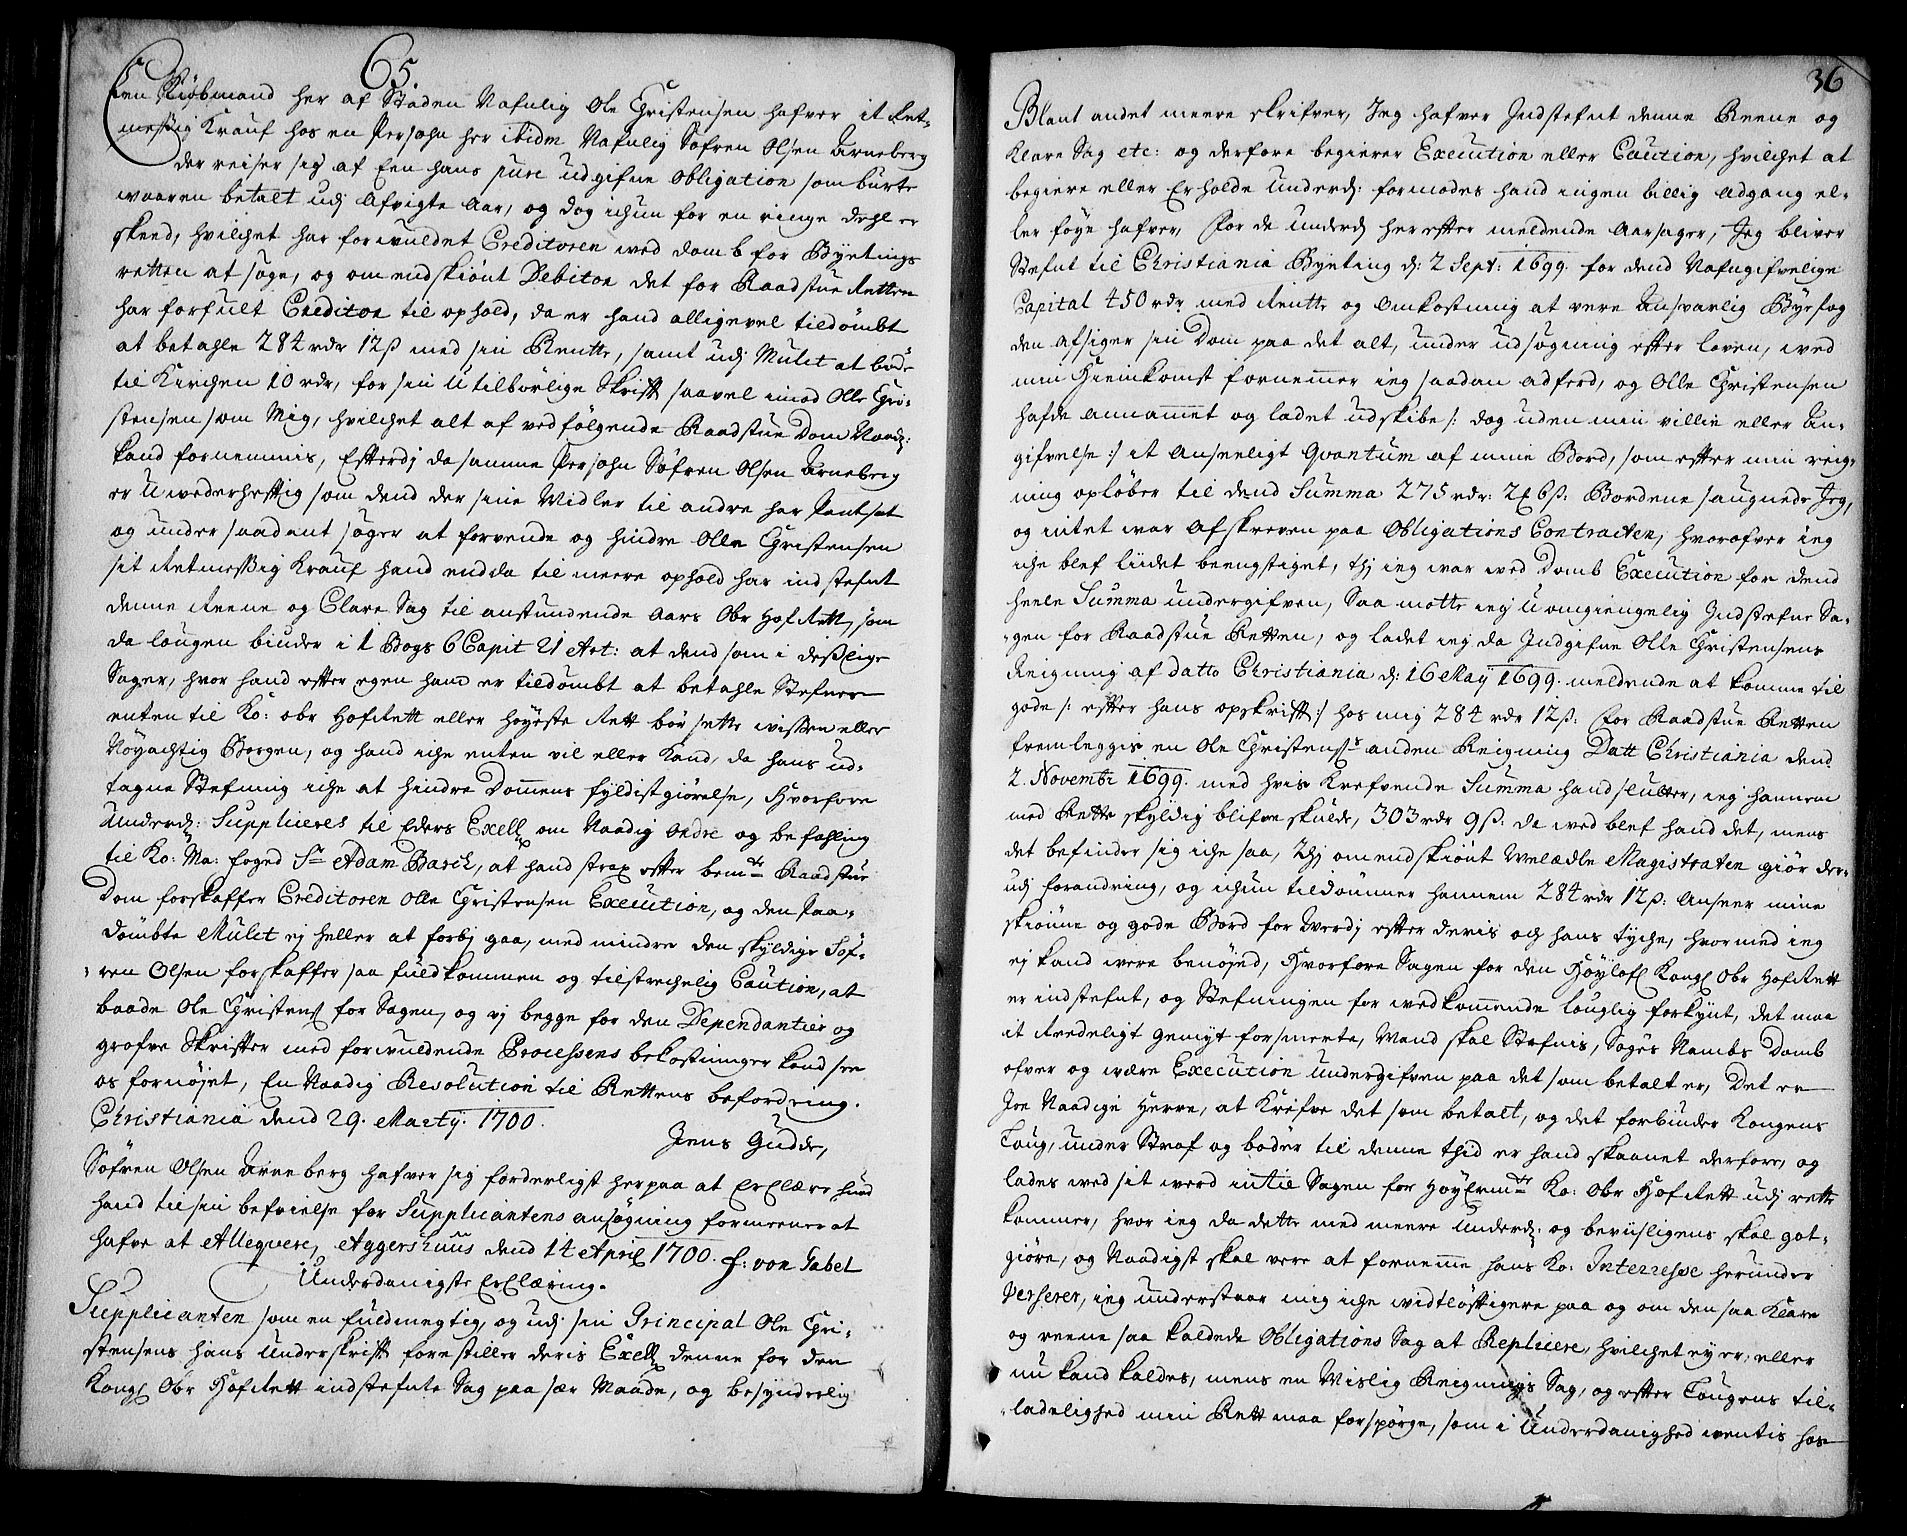 65.
Een Kiöbmand her af Staden Nafnlig Ole Christensen hafver it Ret-
messig Krauf hos en Persohn her ibidm Nafnlig Søfren Olsen Arneberg
der reiser sig af Een hans pure udgifne obligation som burte
waaren betalt udj Afvigte Aar, og dog ichun for en ringe dehl er
skeed, hvilchet har forwuldet Creditoren wed domb for Byetings
retten at søge, og omendskiönt Debitor det for Raadstue Retten
har forfult Creditor til ophold, da er hand alligevel tildömbt
at betahle 284 rdr 12 ß med sin Rentte, samt udj Mulct at böde
til Kirchen 10 rdr, for sin Utilbörlige Skrifft saavel imod Olle Chri-
stensen som Mig, hvilchet alt af vedfölgende Raadstue Dom Naadj:
kand fornemmis, Efterdj da samme Persohn Søfren Olsen Arneberg
er Uwederhefftig som dend der sine Midler til andre har Pantsat
og under saadant søger at forvende og hindre Olle Christensen
sit Retmessig Krauf hand endda til meere ophold har indstefnt
denne Reene og Clare Sag til anstundende Aars Obr HofRett, som
da lougen biuder i 1 Bogs 6 Capit 21 Art: at dend som i deslige
Sager, hvor hand efter egen hand er tildömbt at betahle Stefner
enten til Ko: obr HofRett eller höyeste Rett bör sette wissen eller
Nöyachtig Borgen, og hand iche enten vil eller kand, da hans ud-
tagne Stefning iche at hindre Domens fyldistgiörelse, Hvorfore
Underd: Supplieres til Eders Exell om Naadig Ordre og befahling
til Ko: Ma: foged Sr Adam Barch, at hand strax efter bemte Raadstue
Dom forskaffer Creditoren Olle Christensen Execution, og den Paa-
dömbte Mulct ej heller at forbj gaa, med mindre den skyldige Søf-
ren Olsen forskaffer saa fuldkommen og tilstrechelig Caution, at
baade Ole Christens for Sagen, og vj begge for den Dependantier og
grofve Skriffter med forwuldende Processens bekostninger kand see
os fornöjet, En Naadig Resolution til Rettens befordring.
Christiania dend 29. Martij. 1700.
Jens Gudde,
Söfren Olsen Arneberg hafver sig forderligst herpaa at Erclære hvad
hand til sin befrielse for Supplicantens ansögning formeener at
hafve at Allegvere, Aggershuus dend 14 April 1700. f: von Gabel
Underdanigste Erclæring.
Supplicanten som en fuldmegtig, og udj sin Principal Ole Chri-
stensens hans Underskrifft forestiller deris Exell denne for den
Kongl Obr HofRett indstefnte Sag paa sær Maade, og besynderlig
36
Blant andet meere skrifver, Jeg hafver Indstefnt denne Reene og
Klare Sag etc: og derfore begierer Execution eller Caution, hvilchet at
begiere eller Erholde Underd: formodes hand ingen billig Adgang el-
ler föye hafver, for de Underd herefter meldende Aarsager, Jeg bliver
Stefnt til Christiania Byeting d: 2 Sept: 1699. for dend Nafngifvelige
Capital 450 rdr med Rentte og Omkostning at vere Answarlig Byefog
den afsiger sin Dom paa det alt, under udsögning efter loven, wed
min Hiemkomst fornemer ieg saadan adferd, og Olle Christensen
hafde annamet og ladet udskibe /: dog uden min villie eller An-
gifvelse :/ it Anseeligt Qvantum af mine Bord, som efter min reig-
ning opløber til dend Summa 275 rdr: 2 ℔ 6 ß: Bordene saugnede Jeg,
og intet war Afskreven paa Obligations Contracten, hvorofver ieg
iche blef liidet beengstiget, thj ieg war wed Domb Execution for dend
heele Summa undergifven, Saa motte ieg Uomgiengelig Indstefne Sa-
gen for Raadstue Retten, og ladet ieg da Indgifne Olle Christensens
Reigning af datto Christiania d: 16 May 1699. meldende at komme til
gode /: efter hans opskrifft :/ hos mig 284 rdr 12 ß: for Raadstue Retten
fremleggis en Ole Christenss anden Reigning Datt Christiania dend
2. Novembr 1699. med hvis Krefvende Summa hand slutter, ieg hannem
med Rette skyldig blifve skulde, 303 rdr 9 ß: da wed blef hand det, mens
det befinder sig iche saa, Thj omendskiönt Welædle Magistraten giör der-
udj forandring, og ichun tildömmer hannem 284 rdr 12 ß: Anseer mine
skiönne og gode Bord for Werdj efter deris och hans tyche, hvormed ieg
ej kand were benöjed, Hvorfore Sagen for den Höylofl Kongl Obr HofRett
er indstefnt, og Stefningen for wedkommende louglig forkynt, det maa
it Redeligt Gemyt forsmerte, Mand skal Stefnis, Søges Nambs Domb
ofver og være Execution Undergifven paa det som betalt er, Det er
Joe Naadige Herre, at Krefve det som betalt, og det forbinder Kongens
Loug, under Straf og böder til denne thid er hand skaanet derfore, og
lades wed sit werd intil Sagen for Höybemte Ko: Obr HofRett udj rette
kommer, hvor ieg da dette med meere Underd: og bevisligens skal got-
giöre, og Naadigst skal vere at fornemme hans Ko: Interresse herunder
Verserer, ieg understaar mig iche widtlöfftigere paa og om den saa Klare
og reene saa kaldede Obligations Sag at Replicere, hvilchet ey er, eller
nu kand kaldes, mens en Wislig Reignings Sag, og efter Lougens til-
ladelighed min Rett maa forspörge, som i Underdanighed wentis hos